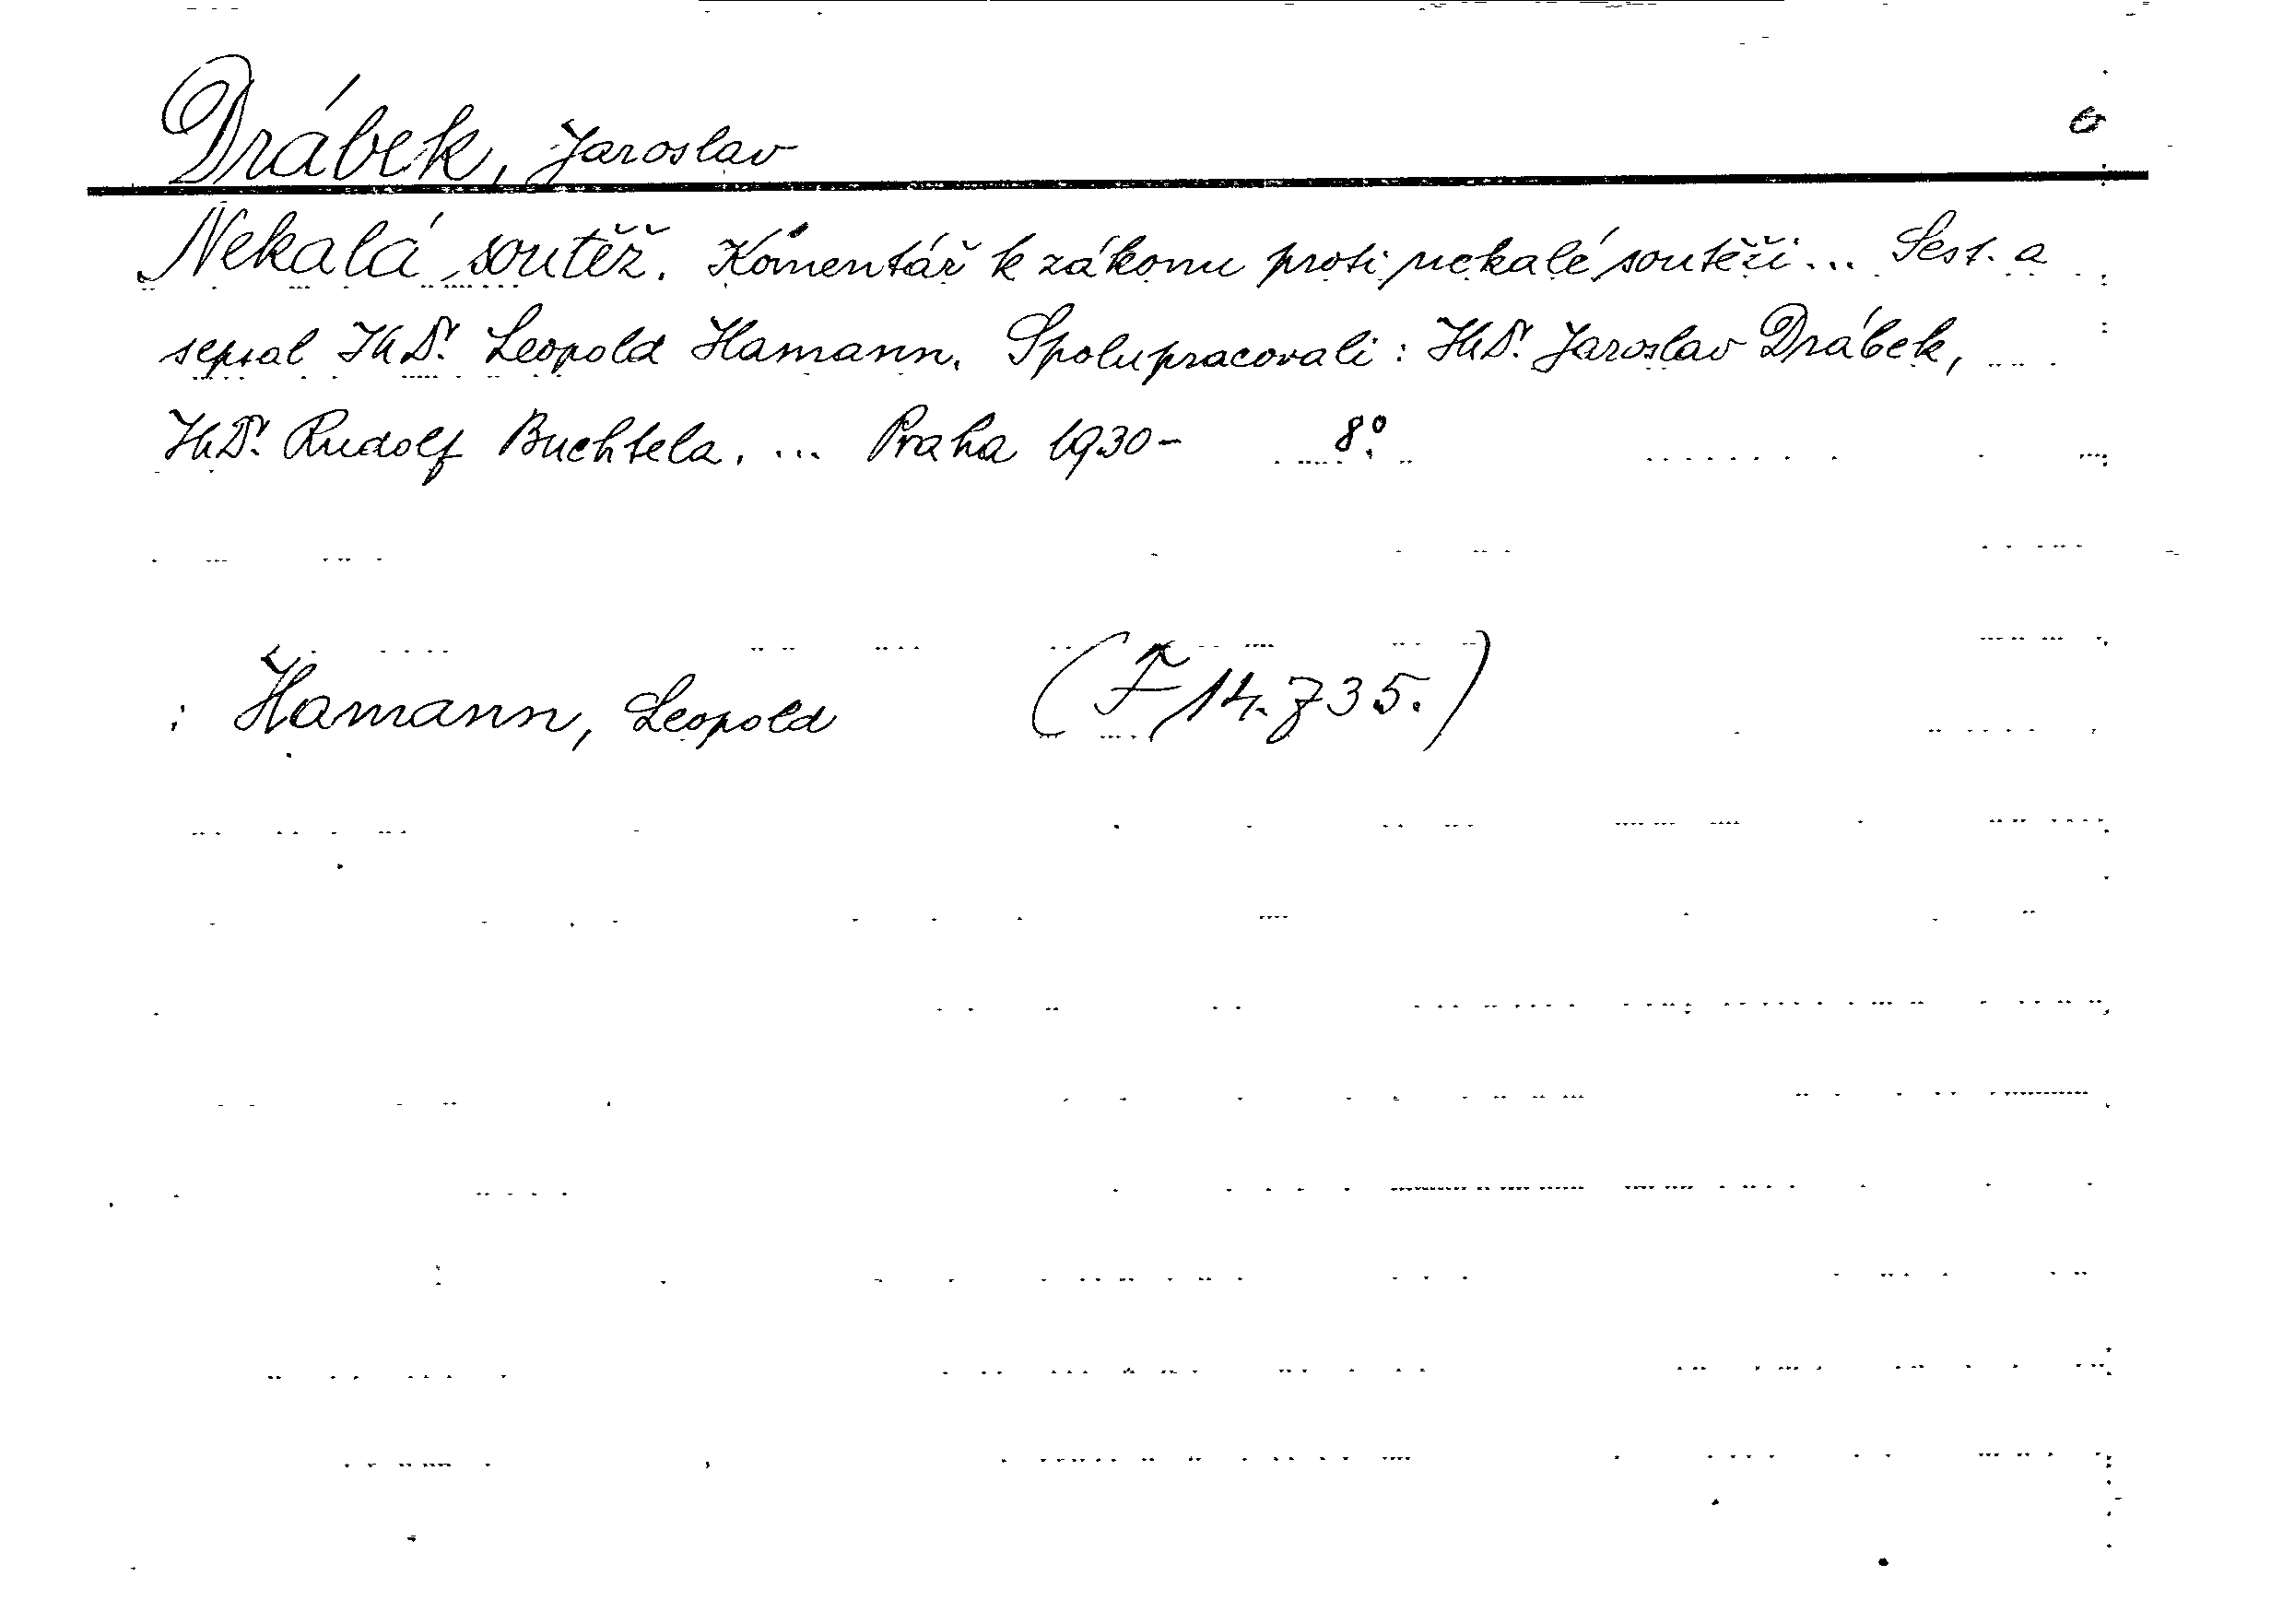 Drábek, Jaroslav
Nekalá soutěž. Komentář k zákonu proti nekalé soutěži... Sest. a
sepsal JUDr. Leopold Hamann. Spolupracovali: JUDr. Jaroslav Drábek,
JUDr. Rudolf Buchtela. ... Praha 1930- 8°.
: Hamann, Leopold (F 14.735.)